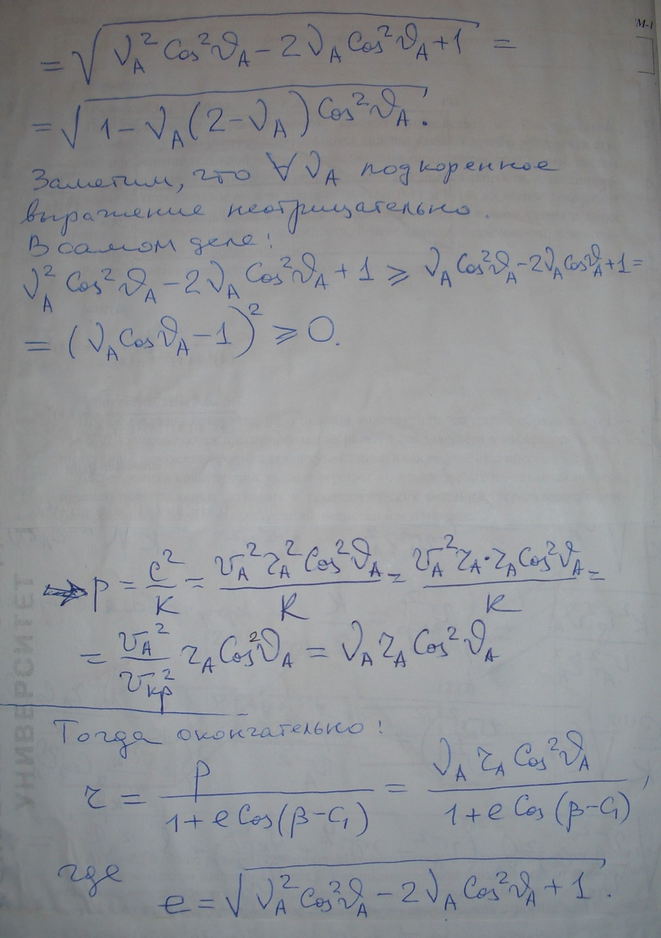 = √(ν_A² Cos²ϑ_A − 2ν_A Cos²ϑ_A + 1) =
= √(1 − ν_A(2 − ν_A) Cos²ϑ_A).
Заметим, что ∀ ν_A подкоренное
выражение неотрицательно.
В самом деле:
ν_A² Cos²ϑ_A − 2ν_A Cos²ϑ_A + 1 ⩾ ν_A Cos²ϑ_A − 2ν_A Cosϑ_A + 1 =
= (ν_A Cosϑ_A − 1)² ⩾ 0.
⇒ p = c²/K = v_A² r_A² Cos²ϑ_A / K = v_A² r_A · r_A Cos²ϑ_A / K =
= v_A²/v_кр² r_A Cos²ϑ_A = ν_A r_A Cos²ϑ_A
Тогда окончательно:
r = p / (1 + e Cos(β − C₁)) = ν_A r_A Cos²ϑ_A / (1 + e Cos(β − C₁)),
где e = √(ν_A² Cos²ϑ_A − 2ν_A Cos²ϑ_A + 1).
УНИВЕРСИТЕТ
М-1